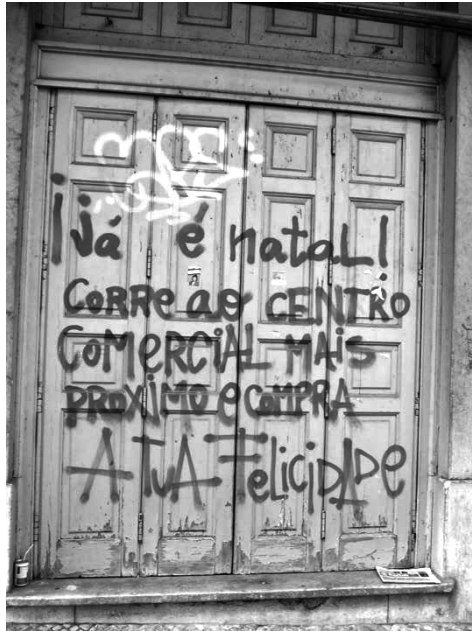 ¡já é natal!
CORRe ao CENTRO
COMeRCIAL MAiS
PROXIMO e COMPRA
A TUA FeLiCiDADe